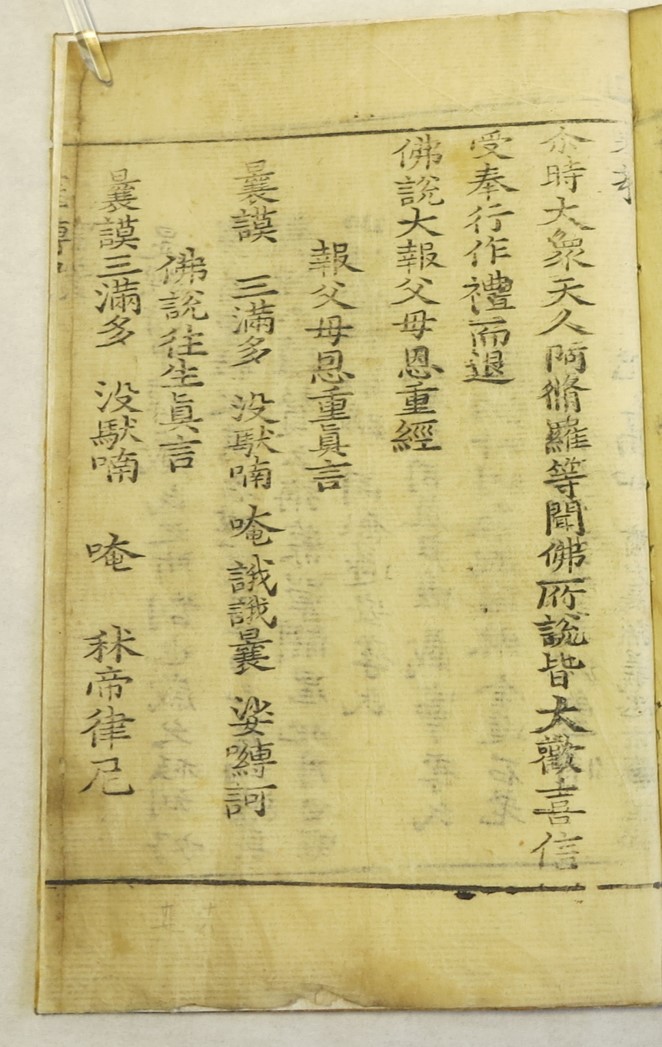 尒時大衆天人阿脩羅等聞佛所說皆大歡喜信
受奉行作禮而退
佛說大報父母恩重經
報父母恩重眞言
曩謨 三滿多 没馱喃 唵 誐誐曩 娑嚩訶
佛說往生眞言
曩謨三滿多 没馱喃 唵 秣帝律尼